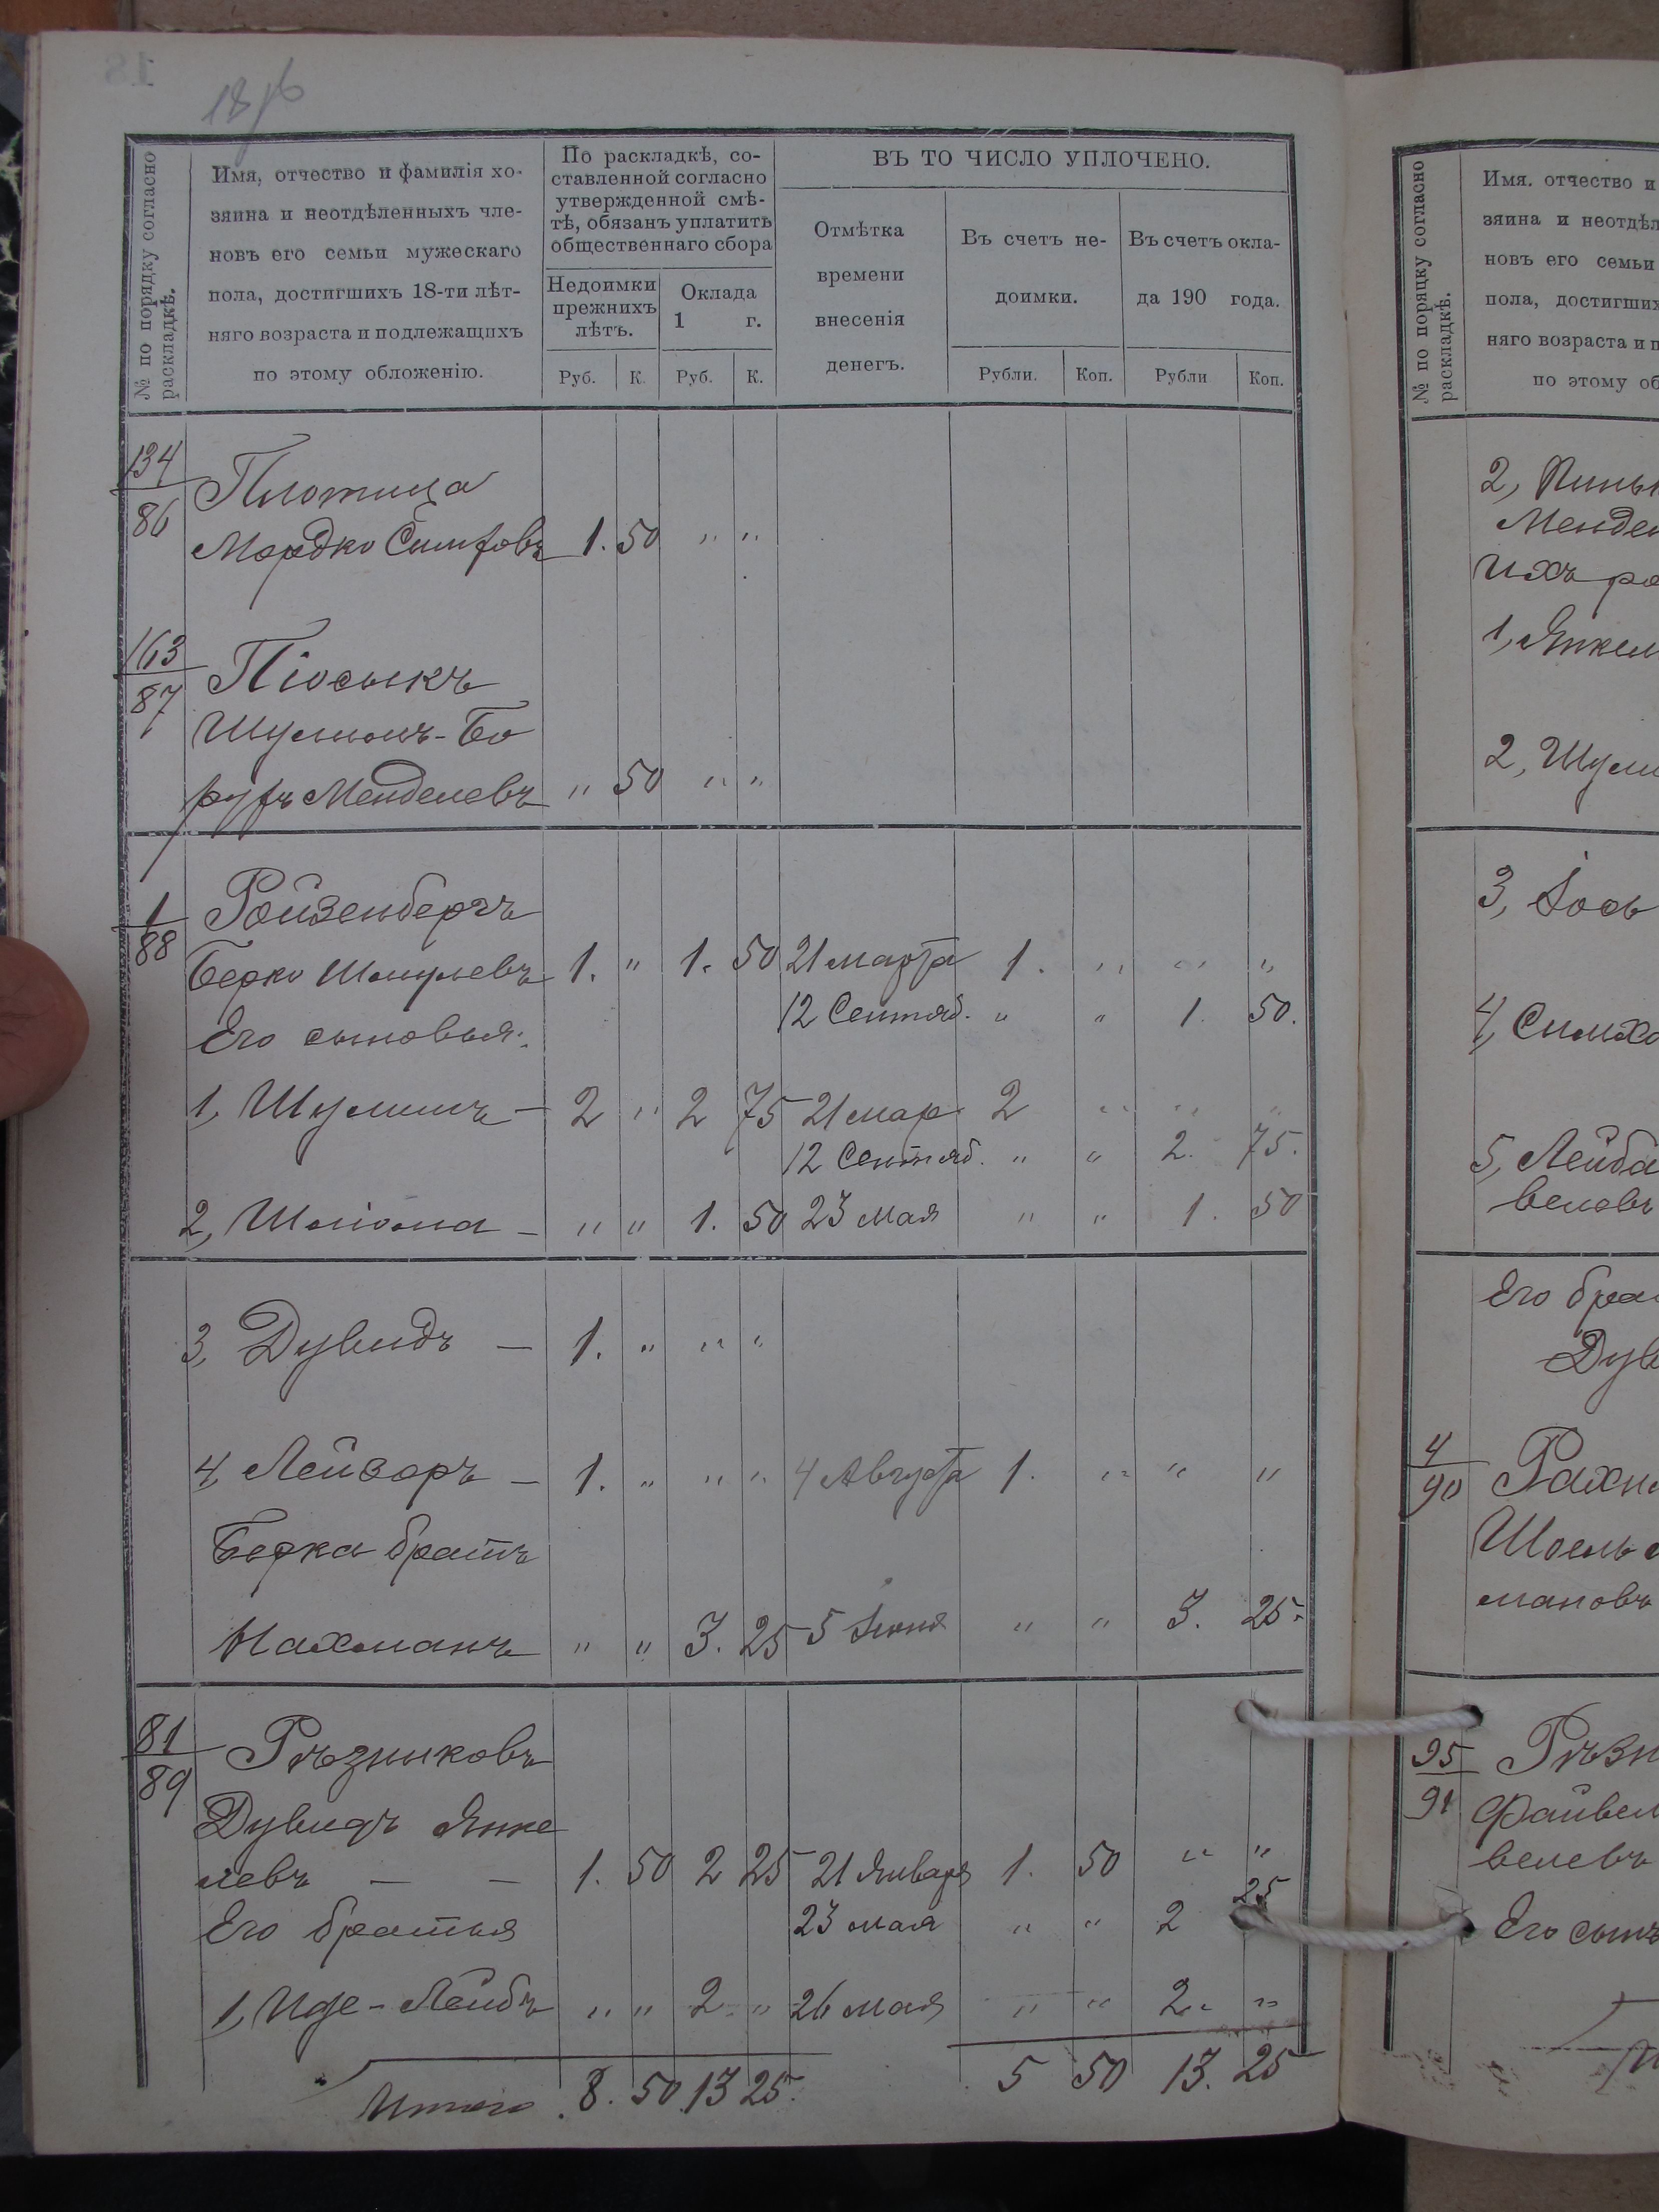 18
№ по порядку согласно
раскладкѣ.
Имя, отчество и фамилія хо-
зяина и неотдѣленныхъ чле-
новъ его семьи мужескаго
пола, достигшихъ 18-ти лѣт-
няго возраста и подлежащихъ
по этому обложенію.
По раскладкѣ, со-
ставленной согласно
утвержденной смѣ-
тѣ, обязанъ уплатить
общественнаго сбора
Недоимки
прежнихъ
лѣтъ.
Оклада
1 г.
Руб. К. Руб. К.
ВЪ ТО ЧИСЛО УПЛОЧЕНО.
Отмѣтка
времени
внесенія
денегъ.
Въ счетъ не-
доимки.
Въ счетъ окла-
да 190 года.
Рубли. Коп. Рубли Коп.
134
86
Плотица
Мордко 1. 50 " "
163
87
Піосыкъ
Шулимъ-Бо
рухъ Менделевъ " 50 " "
1
88
Ройзенбергъ
Берко Шмулевъ 1. " 1. 50 21 марта 1. " " "
12 Сентяб. " " 1. 50.
Его сыновья:
1, Шулимъ - 2 " 2 75 21 мар 2 " " "
12 Сентяб. " " 2. 75.
2, Шліома - " " 1. 50 23 мая " " 1. 50
3, Дувидъ - 1. " " "
4, Лейзоръ - 1. " " " 4 Августа 1. " " "
Берка братъ
Нахманъ " " 3. 25 5 Іюня " " 3. 25.
81
89
Рѣзниковъ
Дувидъ Янке
левъ - - 1. 50 2 25 21 Января 1. 50 " "
Его братья 23 мая " " 2 25
1, Иде-Лейбъ " " 2 " 26 мая " " 2 " "
Итого 8. 50 13 25. 5 50 13. 25
№ по порядку согласно
раскладкѣ.
Имя. отчество и
зяина и неотдѣл
новъ его семьи
пола, достигших
няго возраста и п
по этому об
2,
Мендел
Ихъ
1, Янкел
2, Шули
3, Іось
4, Симхо
5, Лейба
веловъ
Его бра
Дув
4
90
Рахм
мановъ
95
91
Рѣзн
Файвел
велевъ
Его сынъ